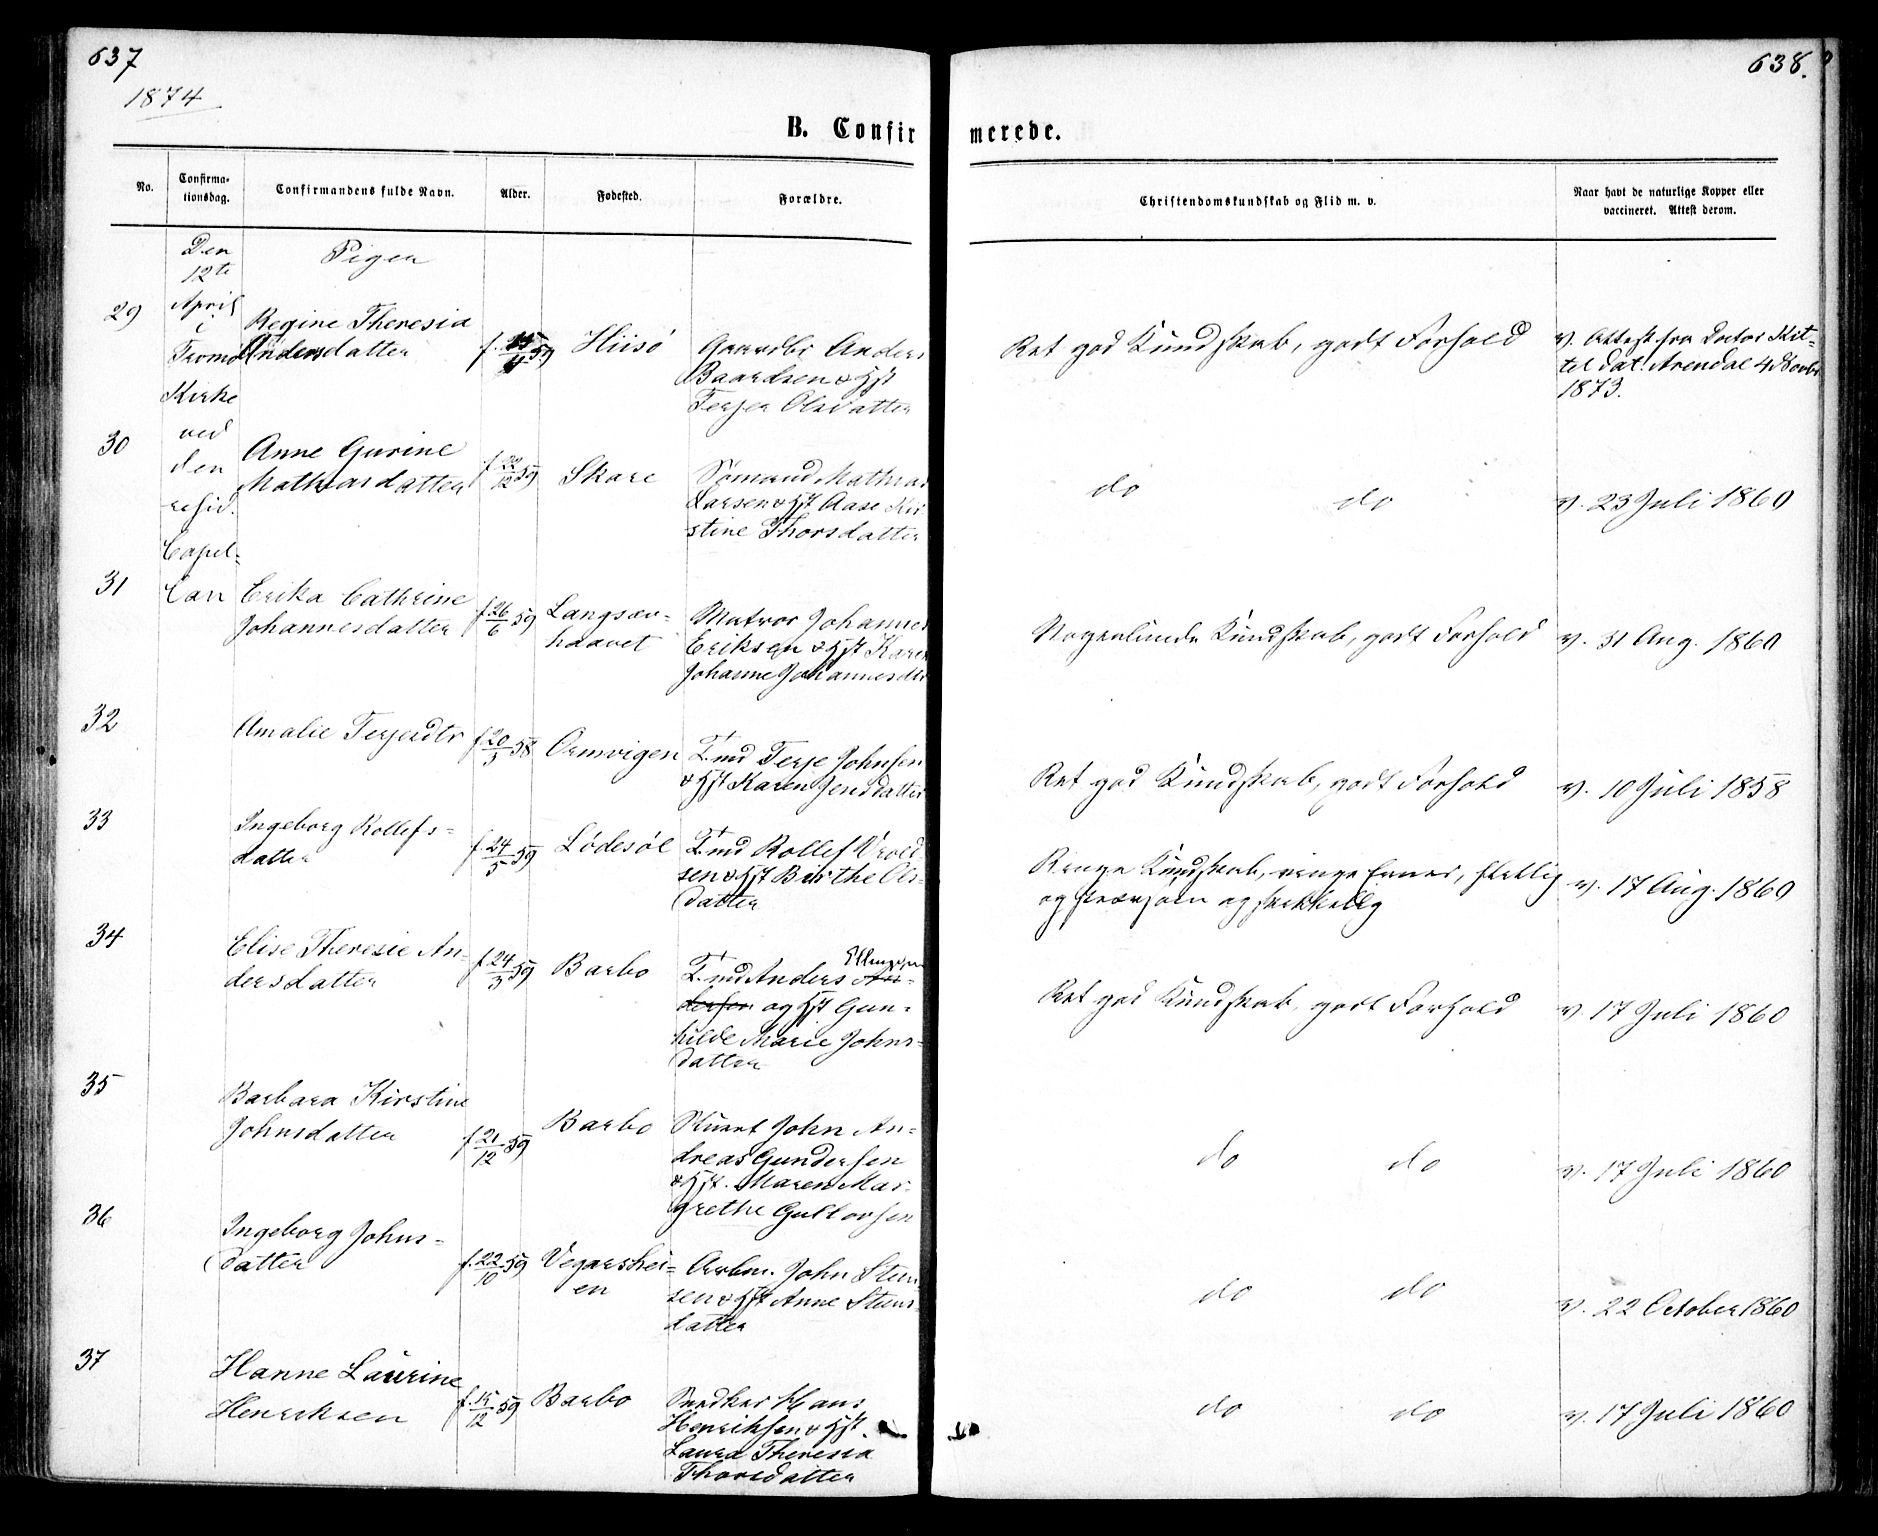 637
638.
1874
B. Confir merede.
No. Confirma- tionsdag. Confirmandens fulde Navn. Alder. Fødested. Forældre. Christendomskundskab og Flid m. v. Naar havt de naturlige Kopper eller vaccineret. Attest derom.
Den
12te
April
i
Tromø
Kirke
ved
den
resid.
Capel=
lan
Pigen
29
Regine Theresia
Andersdatter
f. 59
Hiisø
Gaardbr Anders
Baardsen & Hst
Terjer Olsdatter
Ret god Kundskab, godt Forhold
v. Attest fra Doctor Kit=
tel dat. Arendal 4 Novbr
1873.
30
Anne Gurine
Mathiasdatter
f. 22/12 59
Skare
Sømand Mathias
Larsen & Hst Aase Kir
stine Thorsdatter
do do
v. 23 Juli 1860
31
Erika Cathrine
Johannesdatter
f. 26/6 59
Langsæv=
haavet
Matros Johannes
Eriksen & Hst Karen
Johanne Johannesdtr
Nogenlunde Kundskab, godt Forhold
v. 31 Aug. 1860
32
Amalie Terjerdtr
f. 20/3 58
Ormvigen
T.md Terje Johnsen
& Hst Karen Jensdatter
Ret god Kundskab, godt Forhold
v. 10 Juli 1858
33
Ingeborg Rollefs=
datter
f. 24/5 59
Lødesøl
T.md Rollef Vrold
sen & Hst Birthe Ols=
datter
Ringe Kundskab, ringe Evner, flittig
og stræbsom og skikkelig
v. 17 Aug. 1860
34
Elise Theresie An=
dersdatter
f. 24/3 59
Barbo
Ellingsen
T.md Anders An=
dersen og Hst Gun=
hilde Marie Johns=
datter
Ret god Kundskab, godt Forhold
v. 17 Juli 1860
35
Barbara Kirstine
Johnsdatter
f. 21/12 59
Barbo
Stuert John An=
dreas Gundersen
& Hst. Maren Mar=
grethe Gullovsen
do do
v. 17 Juli 1860
36
Ingeborg Johns=
datter
f. 22/10 59
Vegarshei=
en
Arbm. John Steen
sen & Hst Anne Steens
datter
do do
v. 22 October 1860
37
Hanne Laurine
Henriksen
f. 15/12 59
Barbo
Snedker Hans
Henriksen & Hst.
Laura Theresia
Thorsdatter
do do
v. 17 Juli 1860